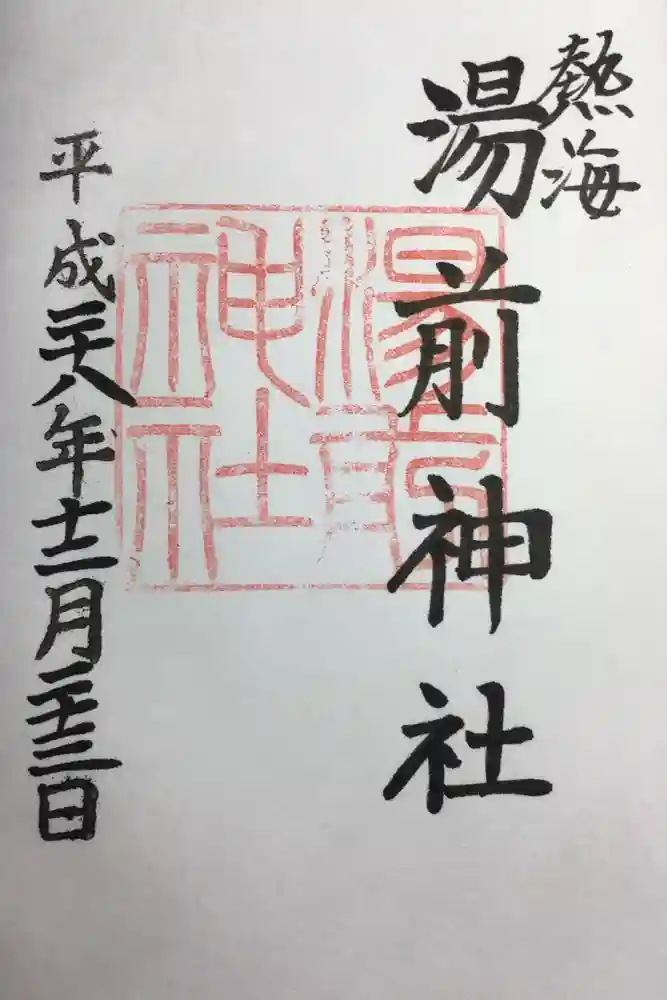 熱海
湯前神社
湯前
神社
平成二十八年十二月二十三日